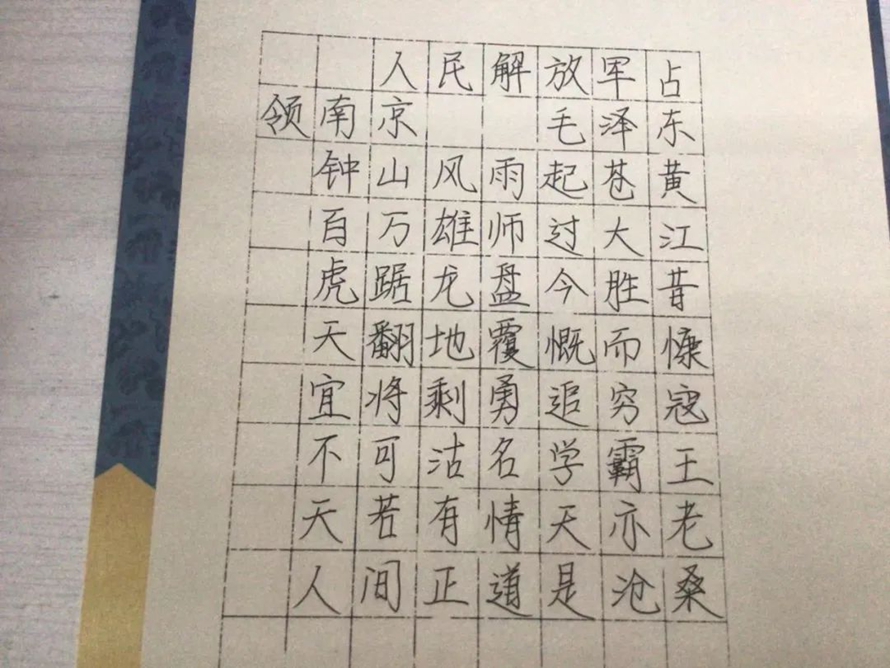 人民解放军占
领南京 毛泽东
钟山风雨起苍黄
百万雄师过大江
虎踞龙盘今胜昔
天翻地覆慨而慷
宜将剩勇追穷寇
不可沽名学霸王
天若有情天亦老
人间正道是沧桑